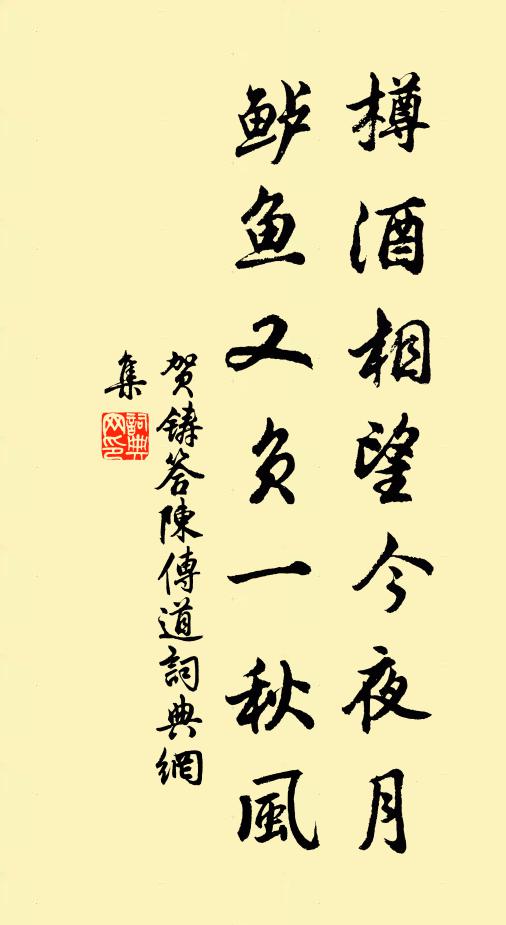 樽酒相望今夜月
鲈鱼又负一秋風
贺鑄答陳傳道詞典網
集
詞典
网印